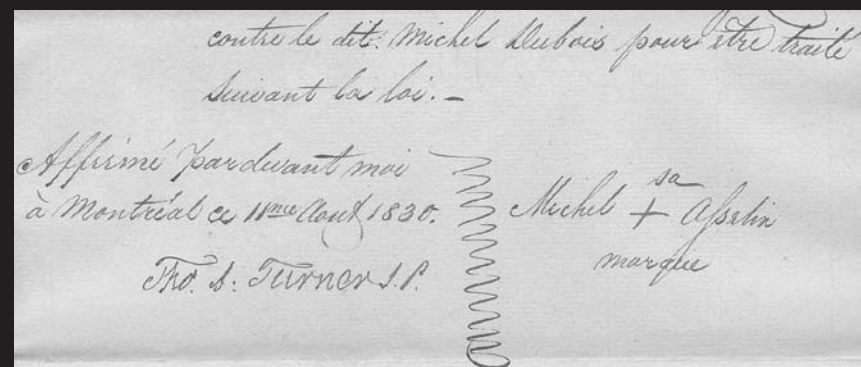 contre le dit Michel Dubois pour être traité
suivant la loi. -
Affirmé pardevant moi
à Montréal ce 11me Aout 1830.
Tho. A. Turner J.P.
sa
Michel + Asselin
marque